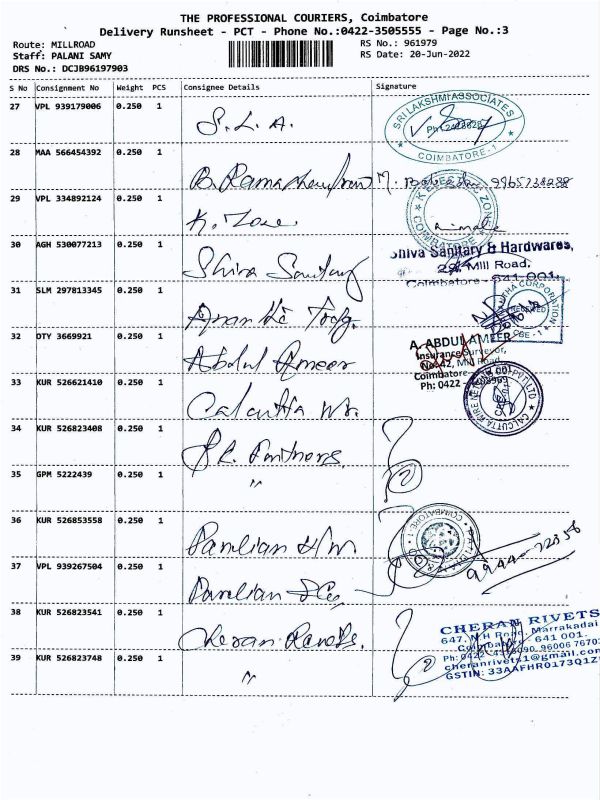 THE PROFESSIONAL COURIERS, Coimbatore
Delivery Runsheet - PCT - Phone No.:0422-3505555 - Page No.:3
Route: MILLROAD
Staff: PALANI SAMY
DRS No.: DCJB96197903
RS No.: 961979
RS Date: 20-Jun-2022
S No Consignment No Weight PCS Consignee Details Signature
27 VPL 939179006 0.250 1 S. L. A.
SRI LAKSHMI ASSOCIATES
COIMBATORE-1
28 MAA 566454392 0.250 1
29 VPL 334892124 0.250 1 K. Zone
K ZONE
COIMBATORE
30 AGH 530077213 0.250 1 Shiva Sanitary
Shiva Sanitary & Hardwares,
Mill Road,
Coimbatore - 641 001.
31 SLM 297813345 0.250 1
CORPORATION
RECEIVED
CBE - 1
32 OTY 3669921 0.250 1 Abdul Ameer
A. ABDUL AMEER
Insurance Surveyor,
No: 42, Mill Road
Coimbatore-
Ph: 0422 -
33 KUR 526621410 0.250 1 Calcutta
CALCUTTA WIRE NETTING CO PVT LTD
34 KUR 526823408 0.250 1
35 GPM 5222439 0.250 1 "
36 KUR 526853558 0.250 1 Pandian
COIMBATORE-1
37 VPL 939267504 0.250 1 Pandian
38 KUR 526823541 0.250 1 Cheran Rivets.
CHERAN RIVETS
647, N H Road, Marrakadai
Coimbatore - 641 001.
cheranrivets1@gmail.com
39 KUR 526823748 0.250 1 "